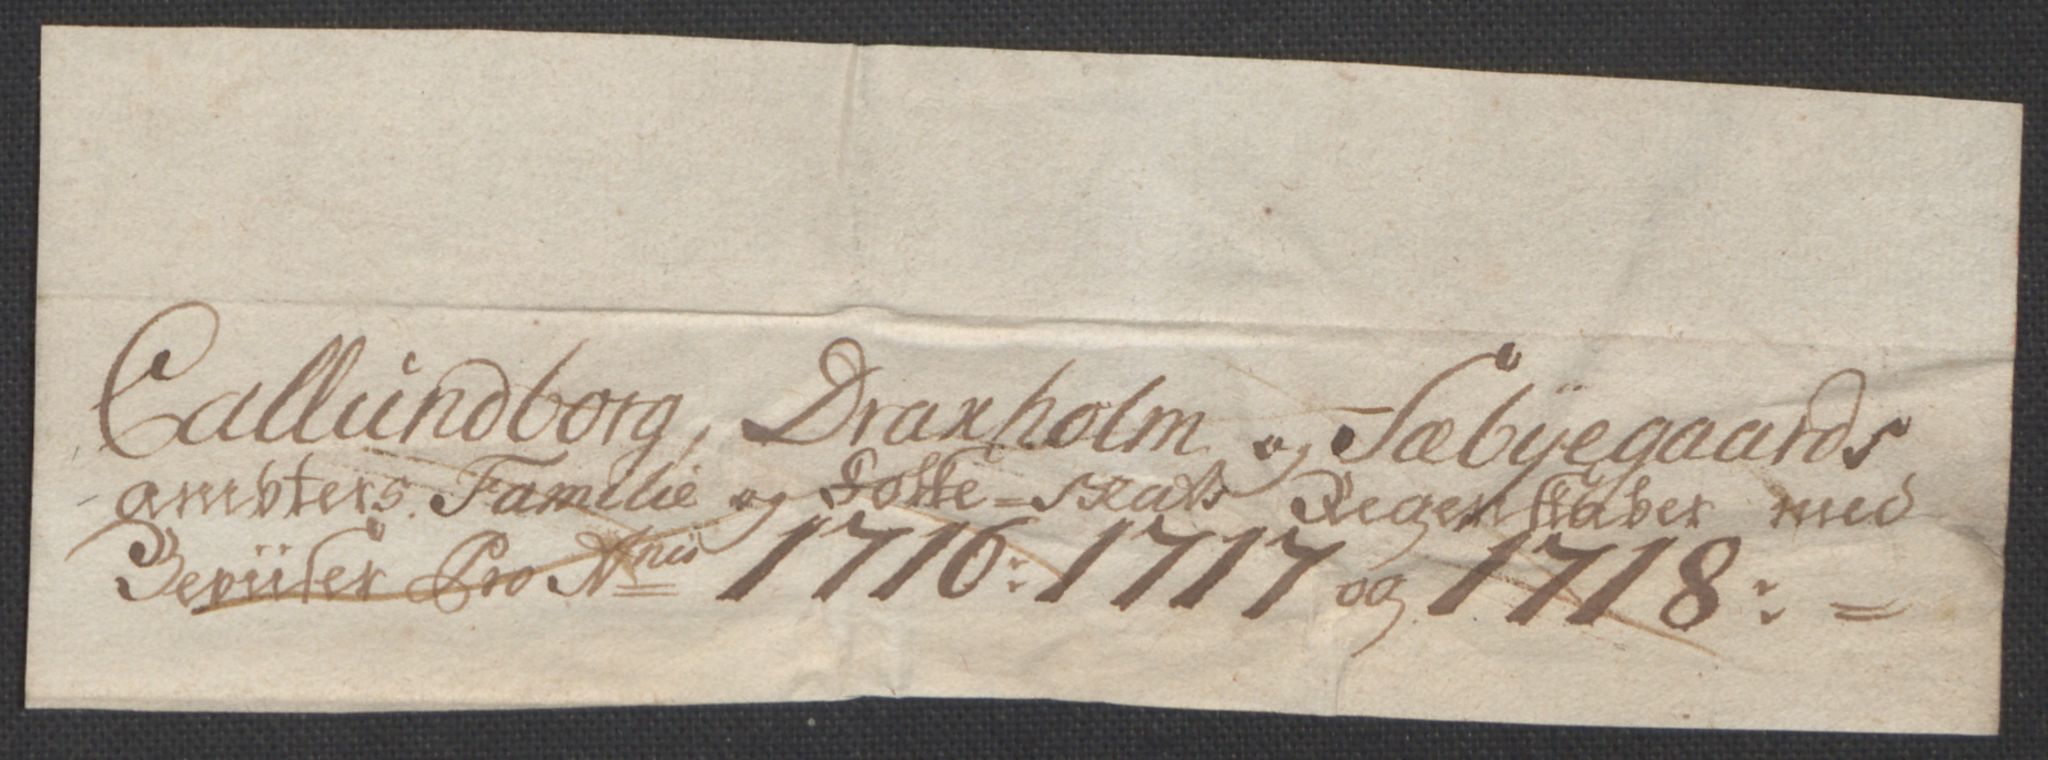 Callundborg, Draxholm og Sæbÿegaards
ambters Familie og Folke=Skats Regenskaber med
Beviiser Pro Annis 1716: 1717 og 1718: =